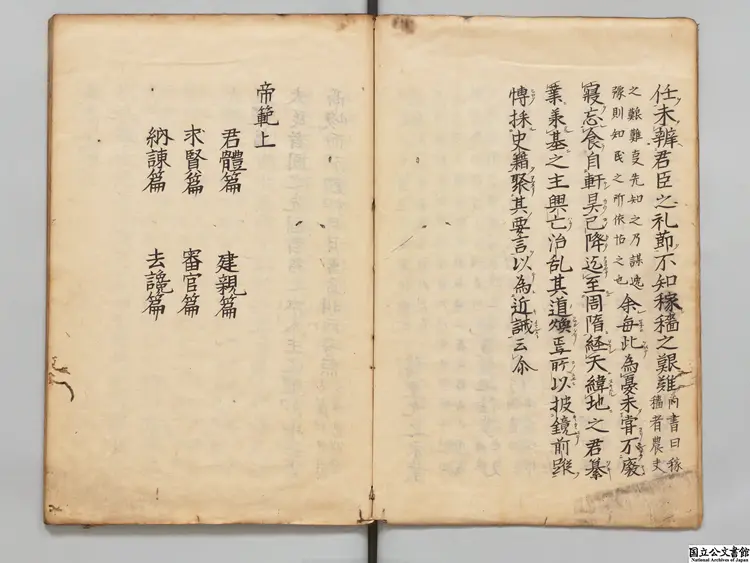 任未辨君臣之礼節不知稼穡之艱難尚書曰稼穡者農夫
之艱難事先知之乃謀逸豫則知民之所依怙之也余毎此為憂未甞不廢
寝忘食自軒昊已降迄至周隋経天緯地之君纂
業承基之主興亡治乱其道煥焉所以披鏡前蹤
博採史籍聚其要言以為近誡云尒
帝範上
君體篇 建親篇
求賢篇 審官篇
納諌篇 去讒篇
国立公文書館
National Archives of Japan